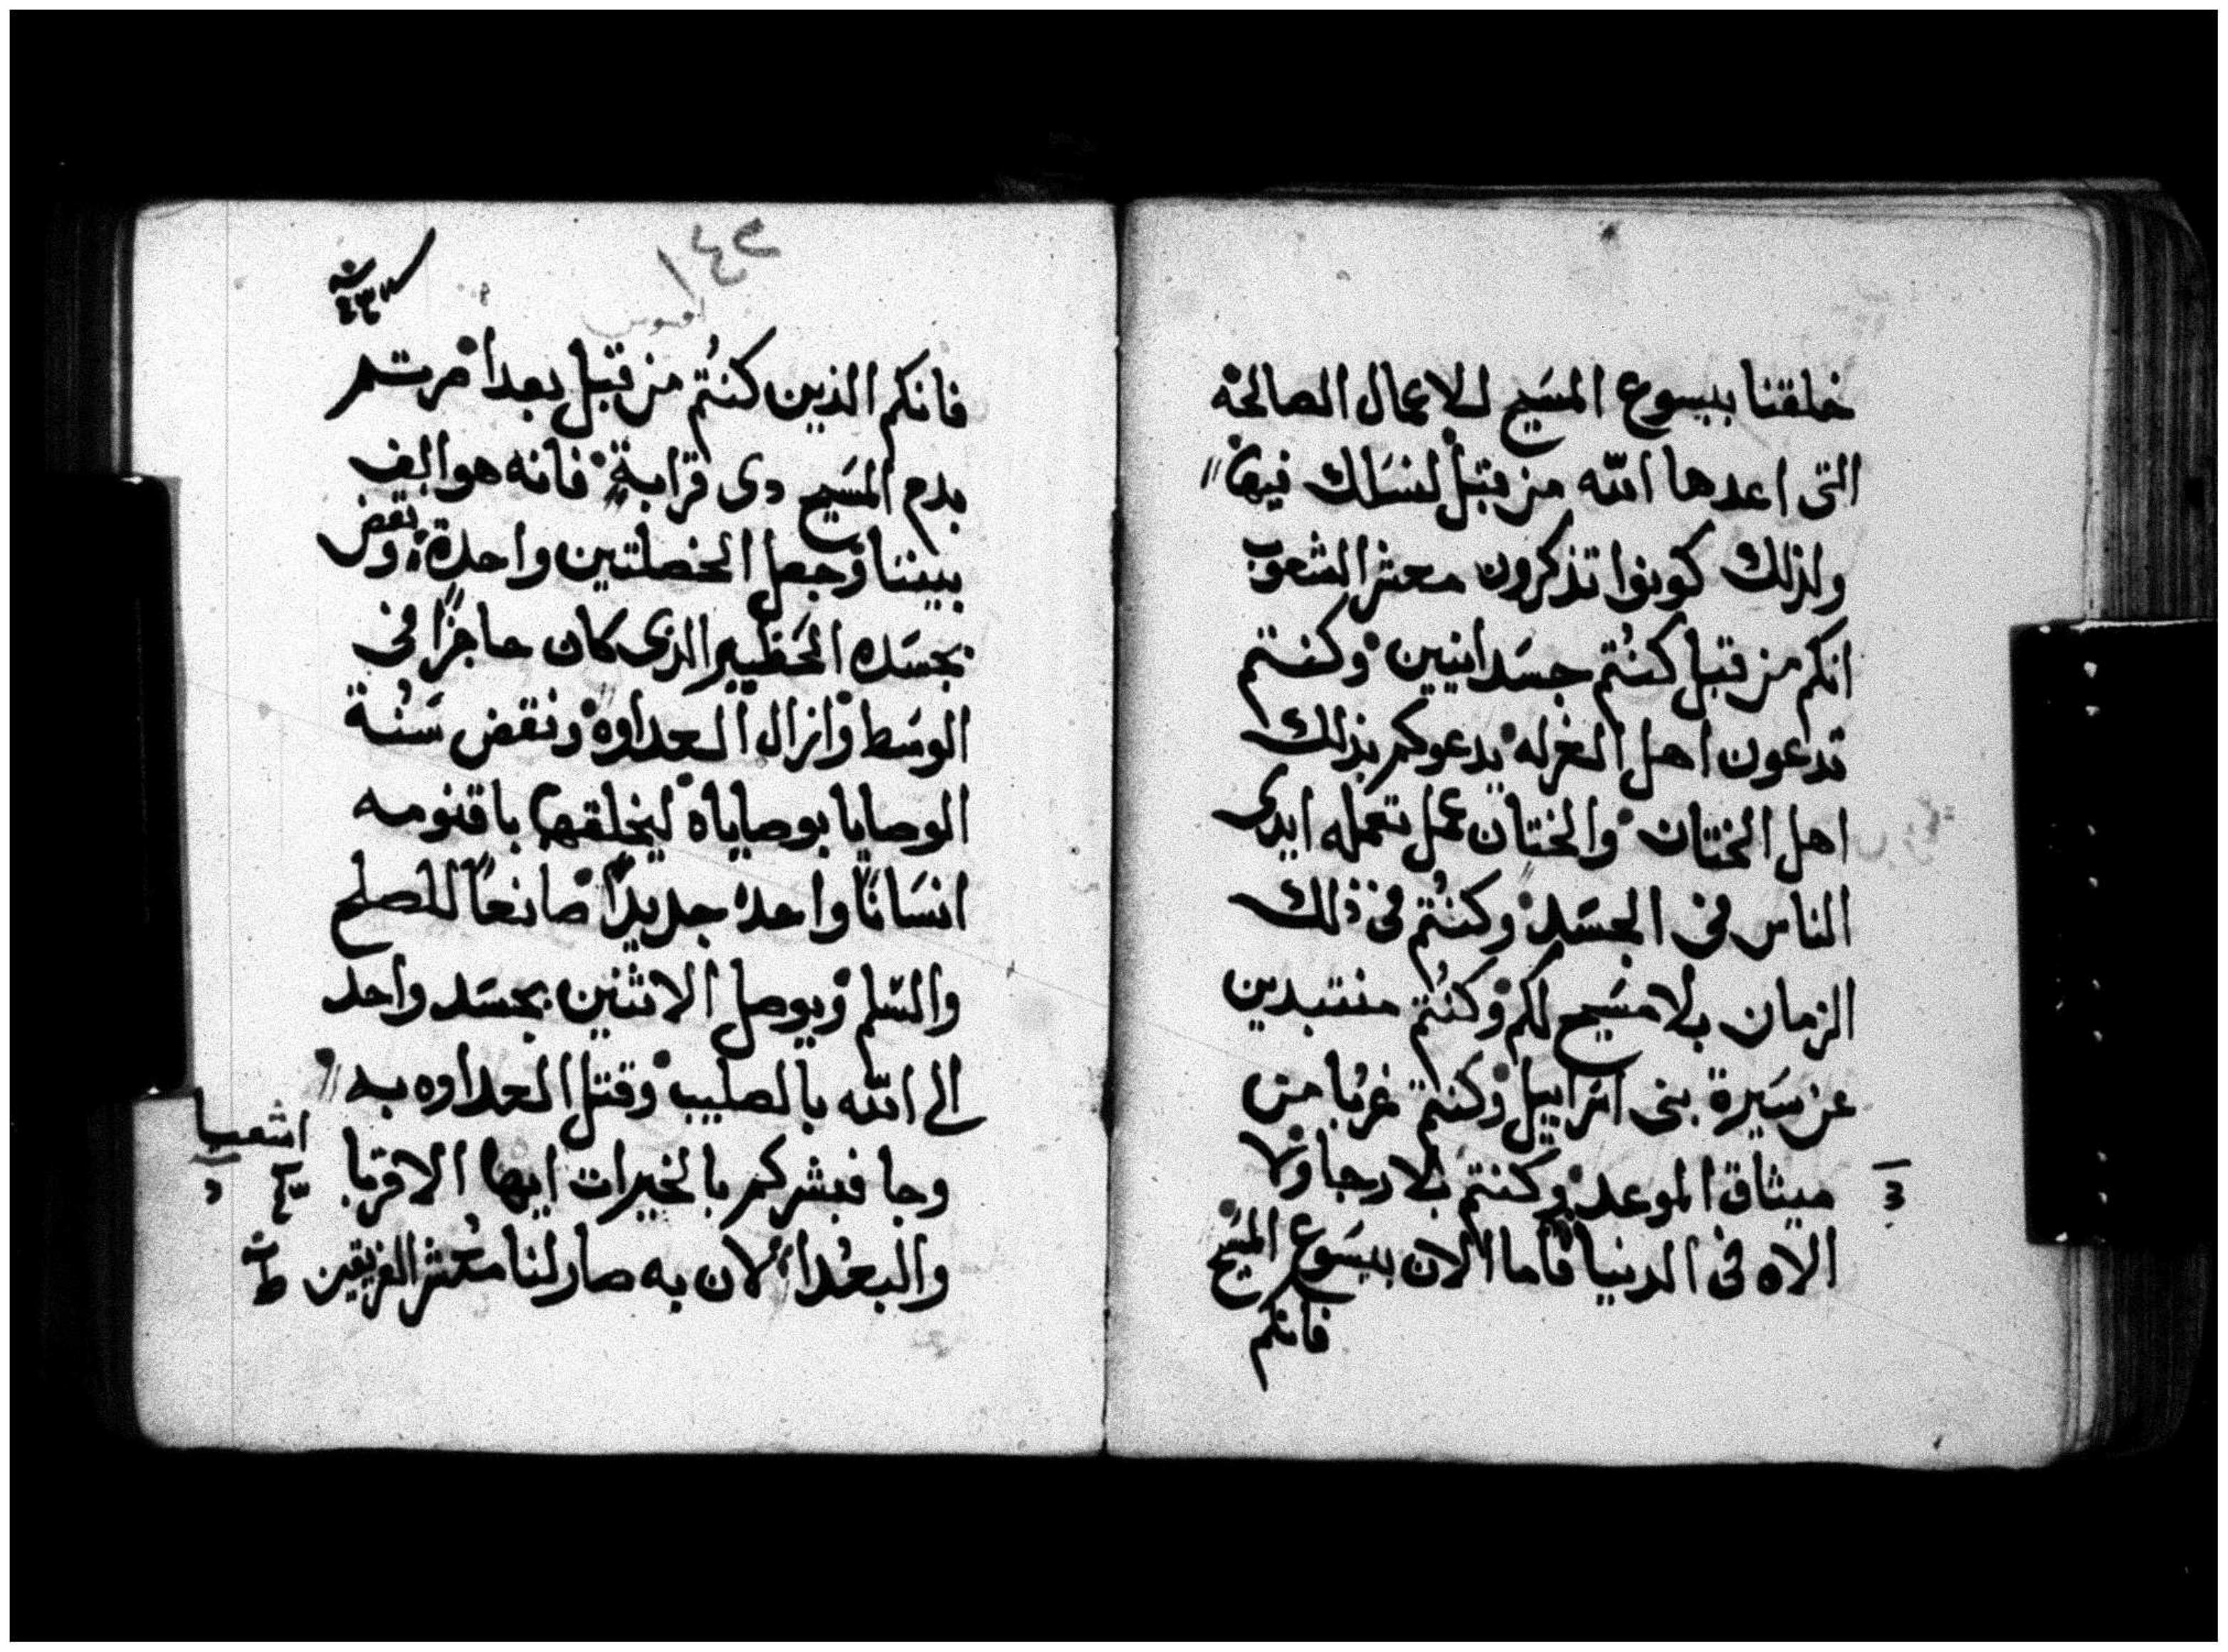 خلقنا بيسوع المسَيح للاعمال الصالحة
التى اعدها الله من قبل لنسَلك فيها
ولذلك كونوا تذكرون معشر الشعوب
انكم من قبل كنتُم جسَدانيين وكنتم
تدعون اهل الغرله يدعوكم بذلك
اهل الختان والختان عمل تعمله ايدى
الناس فى الجسَد وكنتُم فى ذلك
الزمان بلا مسَيح لكم وكنتُم منتبدين
عن سَيرة بنى اسَراييل وكنتم غربا من
ميثاق الموعد وكنتم بلا رجا ولا
الاه فى الدنيا فاما الان بيسَوع المسَيح
فانكم
افسوس
فانكم الذين كنتُم من قبل بعدا صرتم
بدم المسَيح دى قرابةٍ فانه هو الف
بيننا وجعل الخصلتين واحدة ونقض
بجسَده الحَظير الذى كان حاجزًا فى
الوسَط وازال العداوه ونقض سَنُة
الوصايا بوصاياه ليخلقهما باقنومه
انسَانًا واحدًا جديدًا صانعًا للصلح
والسَلم ويوصل الاثنين بجسَد واحد
الى الله بالصليب وقتل العداوه به
وجا فبشركم بالخيرات ايها الاقربا
والبعُدا لان به صار لنا معُشر الفريقين
اشعيا